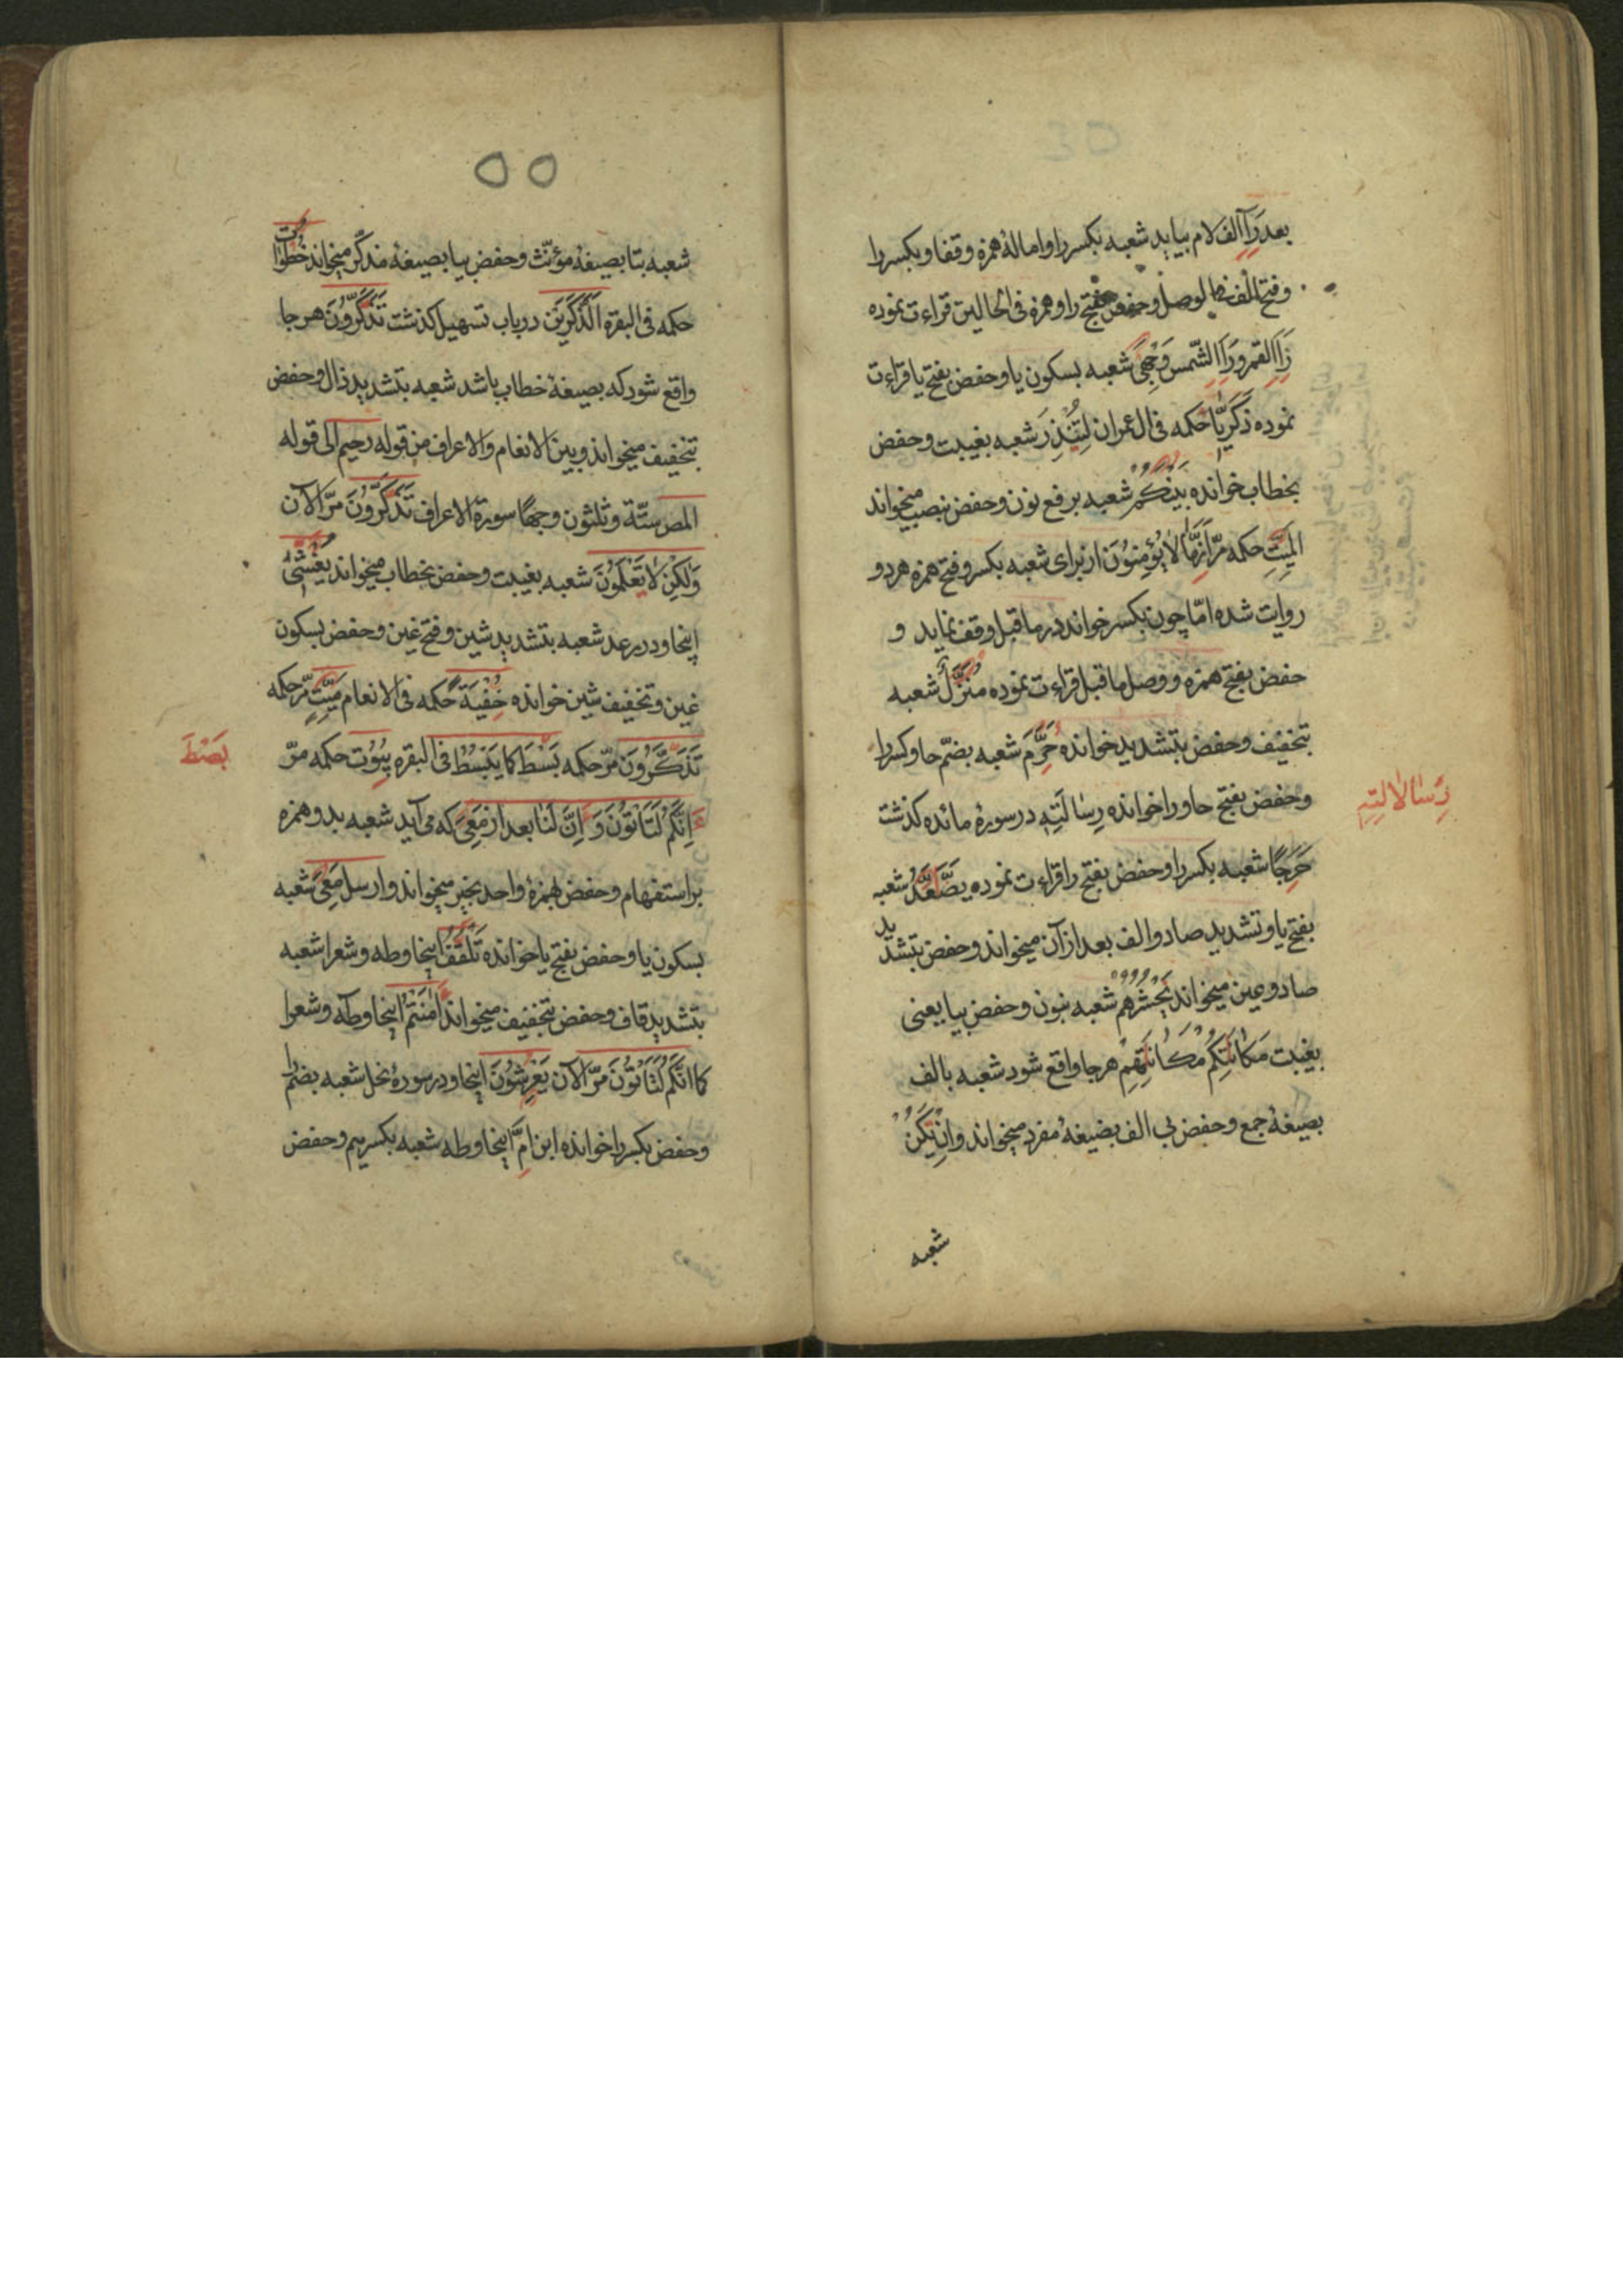 بعد رَآ الف لام بیاید شعبه بکسر را و امالهٔ همزه وقفا و بکسر را
و فتح الف فی الوصل و حفص بفتح را و همزه فی الحالین قراءت نموده
رَاَ القمر و رَاَ الشّمس وَجْهِیَ شعبه بسکون یا و حفص بفتح یا قراءت
نموده زَکَرِیَّا حکمه فی ال عمران لِتُنْذِرَ شعبه بغیبت و حفص
بخطاب خوانده بَیْنَکُمْ شعبه برفع نون و حفص بنصب میخواند
المَیِّتِ حکمه مرّ اَنَّهَا لَا یُؤْمِنُوْنَ از برای شعبه بکسر و فتح همزه هر دو
روایت شده امّا چون بکسر خواند در ما قبل وقف نماید و
حفص بفتح همزه و وصل ما قبل قراءت نموده مُنَزَّلٌ شعبه
بتخفیف و حفص بتشدید خوانده حَرَّمَ شعبه بضمّ حا و کسر را
و حفص بفتح حا و را خوانده رِسَالَتِهٖ در سورهٔ مائده کذشت
رِسَالَاتِهٖ
حَرَجًا شعبه بکسر را و حفص بفتح را قراءت نموده یَصَّعَّدُ شعبه
بفتح یا و تشدید صاد و الف بعد از آن میخواند و حفص بتشدید
صاد و عین میخواند یَحْشُرُهُمْ شعبه بنون و حفص بیا یعنی
بغیبت مَکَانَتِکُمْ مَکَانَتِهِمْ هر جا واقع شود شعبه بالف
بصیغهٔ جمع و حفص بی الف بصیغهٔ مفرد میخواند وَاِنْ یَکُنْ
شعبه
٥٥
شعبه بتا بصیغهٔ مؤنّث و حفص بیا بصیغهٔ مذکّر میخواند خُطُوَاتِ
حکمه فی البقره الذَّکَرَیْنِ در باب تسهیل کذشت تَذَکَّرُوْنَ هر جا
واقع شود که بصیغهٔ خطاب باشد شعبه بتشدید ذال و حفص
بتخفیف میخواند و بین الانعام والاعراف من قوله رحیم الی قوله
المص ستّة و ثلثون وجها سورة الاعراف تَذَکَّرُوْنَ مرّ الآن
وَلٰکِنْ لَا تَعْلَمُوْنَ شعبه بغیبت و حفص بخطاب میخواند یُغْشِی
اینجا و در رعد شعبه بتشدید شین و فتح غین و حفص بسکون
غین و تخفیف شین خوانده خُفْیَةً حکمه فی الانعام مَیِّتٍ مرّ حکمه
تَذَکَّرُوْنَ مرّ حکمه بَسْطَةً کما یَبْسُطُ فی البقره بُیُوْت حکمه مرّ
بَصْطَةً
اِنَّکُمْ لَتَاْتُوْنَ وَ اِنَّ لَنَا بعد از مَعِیَ که می آید شعبه بدو همزه
بر استفهام و حفص بهمزهٔ واحد بخبر میخواند و ارسل مَعِیَ شعبه
بسکون یا و حفص بفتح یا خوانده تَلْقَفُ اینجا و طه و شعرا شعبه
بتشدید قاف و حفص بتخفیف میخواند اٰمَنْتُمْ اینجا و طه و شعرا
کما انّکم لَتَاْتُوْنَ مرّ الآن یَعْرِشُوْنَ اینجا و در سورهٔ نحل شعبه بضمّ را
و حفص بکسر را خوانده ابن اُمَّ اینجا و طه شعبه بکسر میم و حفض